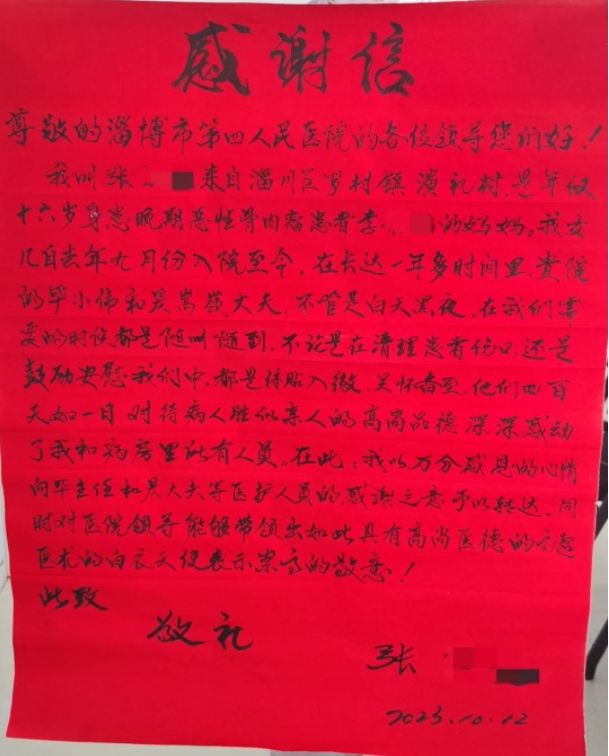 感谢信
尊敬的淄博市第四人民医院的各位领导您们好！
我叫张 来自淄川区罗村镇演礼村，是年仅
十六岁身患晚期恶性骨肉瘤患者李 的妈妈。我女
儿自去年九月份入院至今，在长达一年多时间里，贵院
的毕小伟和 大夫，不管是白天黑夜，在我们需
要的时候都是随叫随到，不论是在清理患者伤口，还是
鼓励安慰我们中，都是体贴入微，关怀备至，他们四百
天如一日，对待病人胜似亲人的高尚品德深深感动
了我和病房里所有人员，在此，我以万分感恩的心情
向毕主任和 大夫等医护人员的感谢之意予以转达，同
时对医院领导能够带领出如此具有高尚医德的
医术的白衣天使表示崇高的敬意！
此致
敬礼
张
2023.10.12